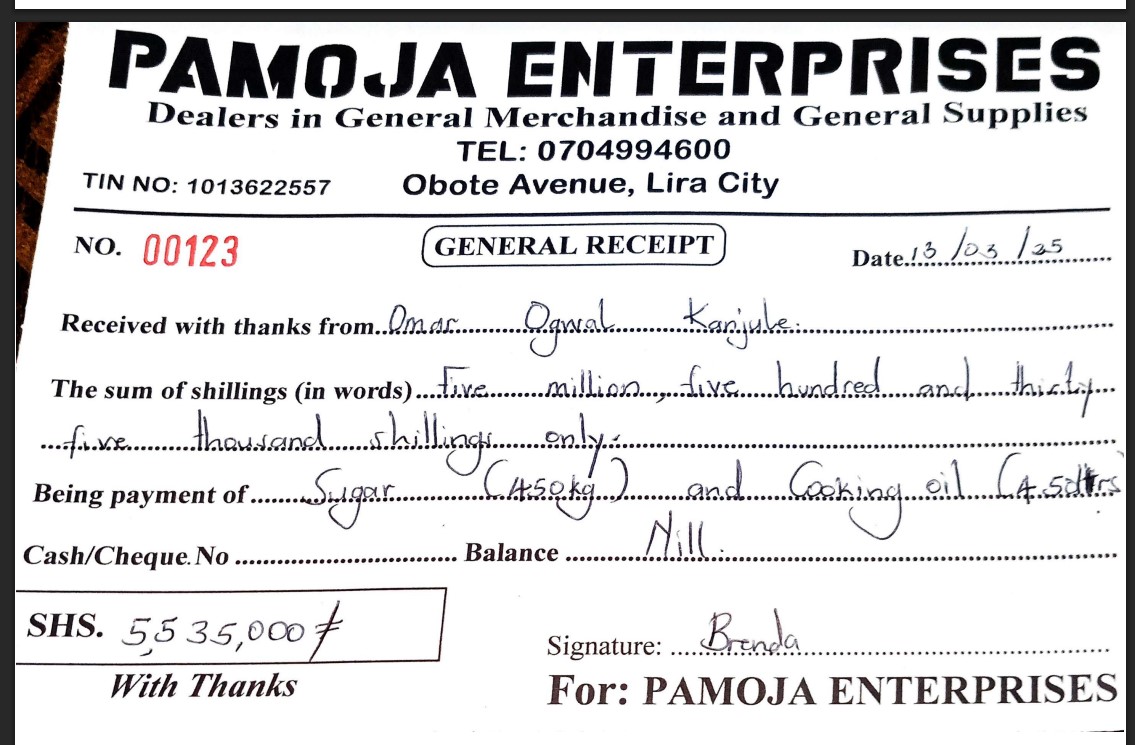 PAMOJA ENTERPRISES
Dealers in General Merchandise and General Supplies
TEL: 0704994600
TIN NO: 1013622557 Obote Avenue, Lira City
NO. 00123 GENERAL RECEIPT Date 13/03/25
Received with thanks from Omar Ogwal Kanjule.
The sum of shillings (in words) Five million, five hundred and thirty
five thousand shillings only.
Being payment of Sugar (450kg) and Cooking oil
Cash/Cheque.No Balance Nill.
SHS. 5,535,000/=
Signature: Brenda
With Thanks For: PAMOJA ENTERPRISES